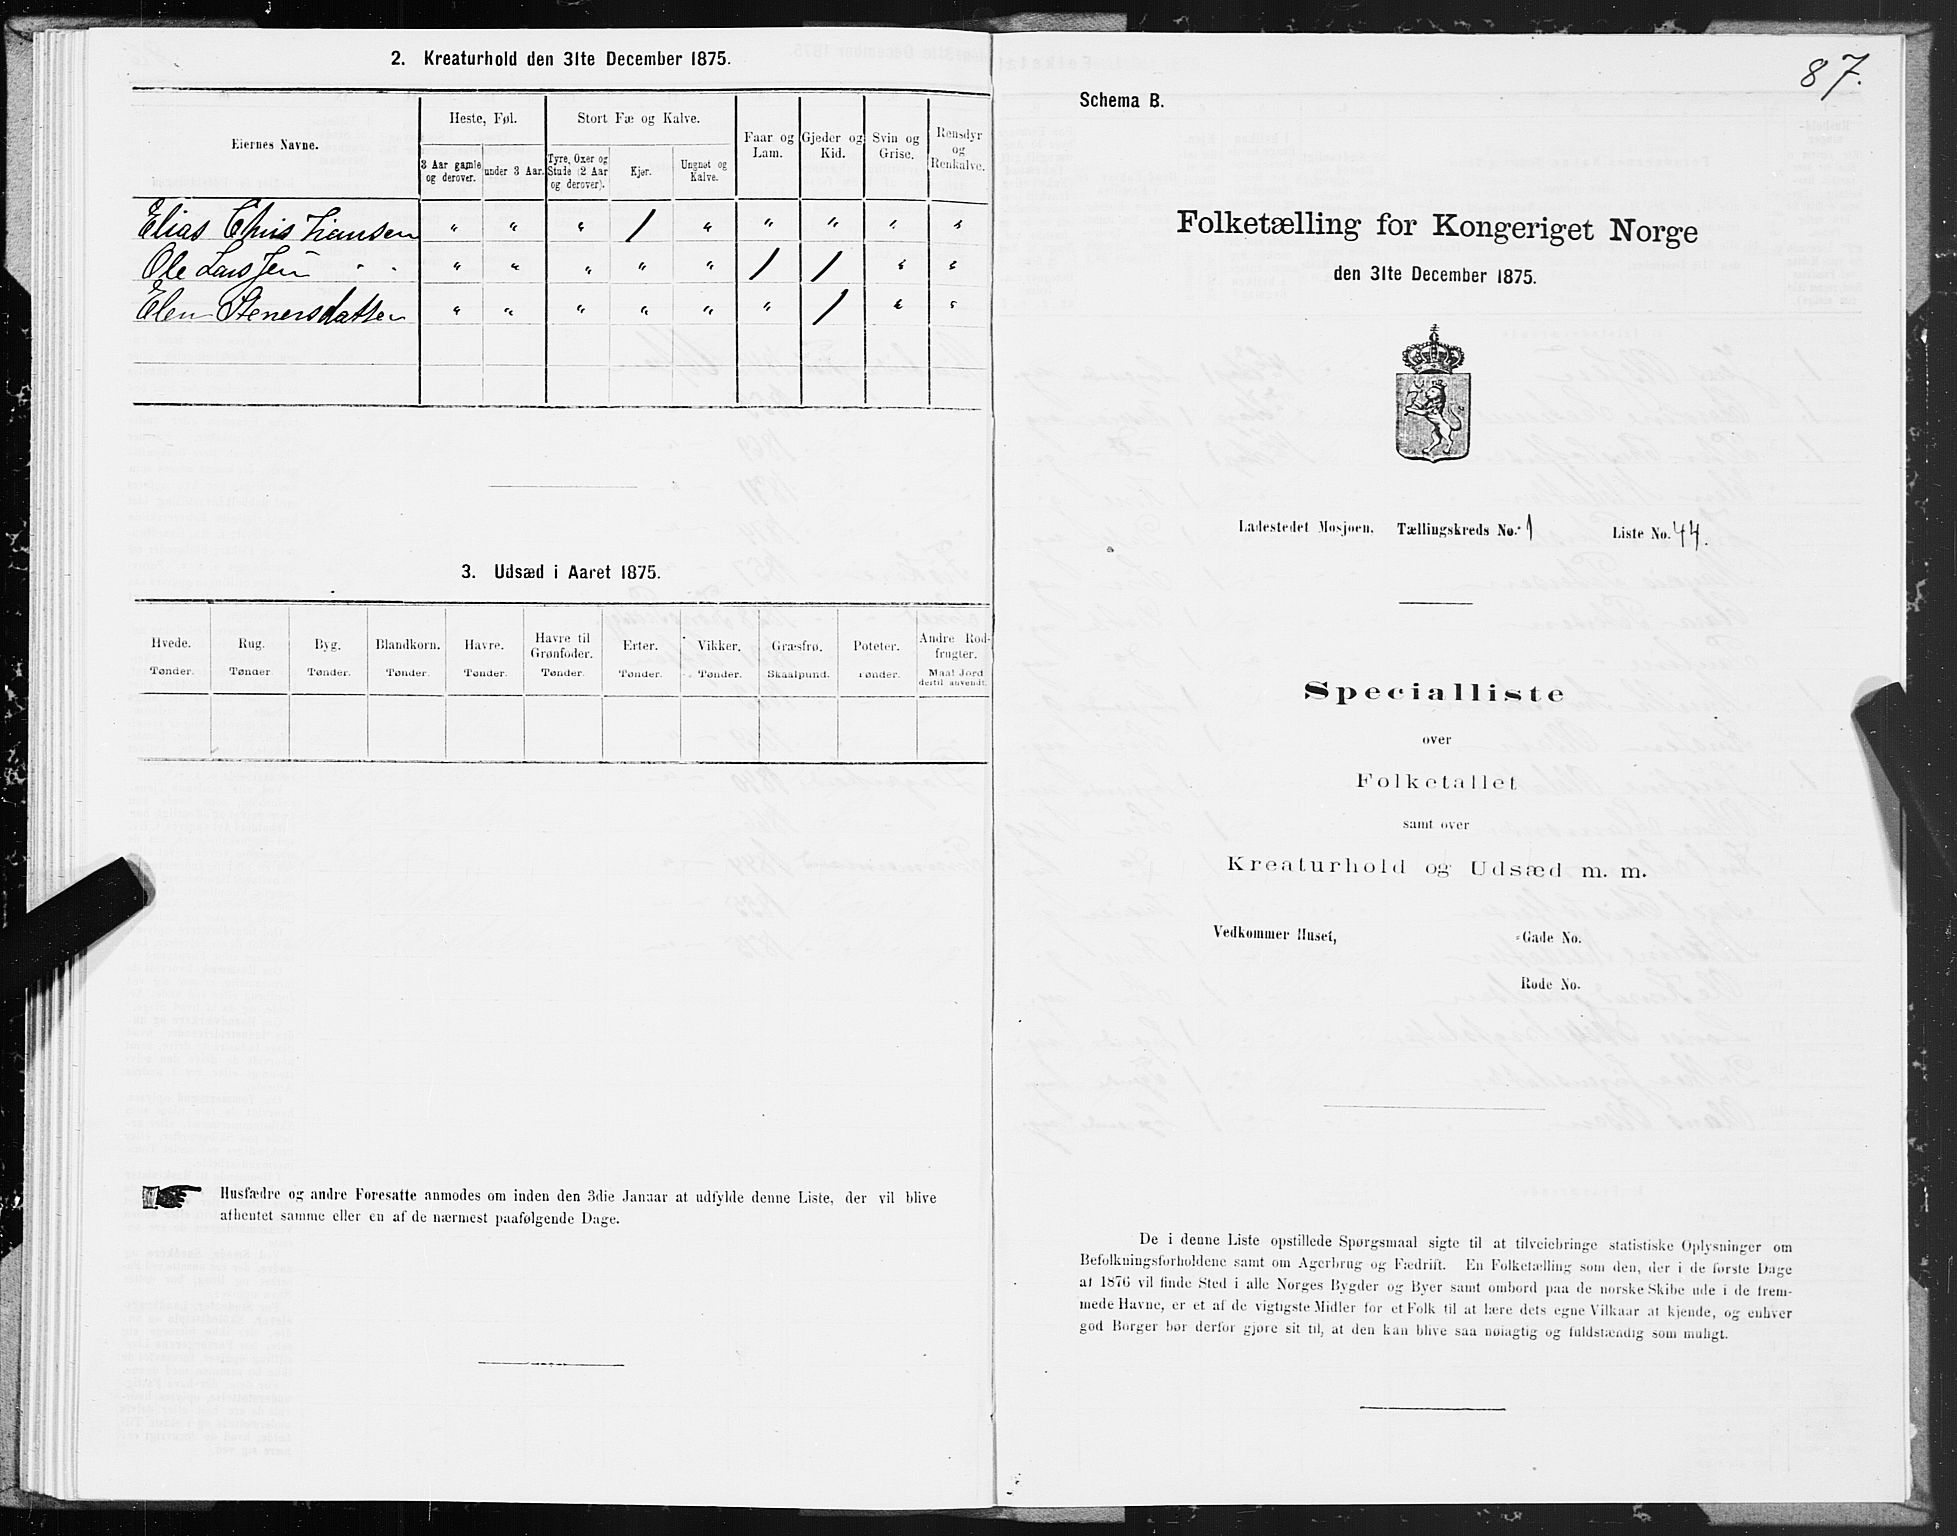 2. Kreaturhold den 31te December 1875.
Eiernes Navne.
Heste, Føl.
Stort Fæ og Kalve.
Faar og Lam.
Gjeder og Kid.
Svin og Grise.
Rensdyr og Renkalve.
3 Aar gamle og derover.
under 3 Aar.
Tyre, Oxer og Stude (2 Aar og derover).
Kjør.
Ungnøt og Kalve.
Elias Christiansen " " " 1 " " " " "
Ole Larssen " " " " " 1 1 " "
Elen Stenersdatter " " " " " " 1 " "
3. Udsæd i Aaret 1875.
Hvede. Rug. Byg. Blandkorn. Havre. Havre til Grønfoder. Erter. Vikker. Græsfrø. Poteter. Andre Rodfrugter.
Tønder. Tønder. Tønder. Tønder. Tønder. Tønder. Tønder. Tønder. Skaalpund. Tønder. Maal Jord dertil anvendt.
Husfædre og andre Foresatte anmodes om inden den 3die Januar at udfylde denne Liste, der vil blive
afhentet samme eller en af de nærmest paafølgende Dage.
87.
Schema B.
Folketælling for Kongeriget Norge
den 31te December 1875.
Ladestedet Mosjøen. Tællingskreds No. 1 Liste No. 44.
Specialliste
over
Folketallet
samt over
Kreaturhold og Udsæd m. m.
Vedkommer Huset, Gade No.
Rode No.
De i denne Liste opstillede Spørgsmaal sigte til at tilveiebringe statistiske Oplysninger om
Befolkningsforholdene samt om Agerbrug og Fædrift. En Folketælling som den, der i de første Dage
af 1876 vil finde Sted i alle Norges Bygder og Byer samt ombord paa de norske Skibe ude i de frem-
mede Havne, er et af de vigtigste Midler for et Folk til at lære dets egne Vilkaar at kjende, og enhver
god Borger bør derfor gjøre sit til, at den kan blive saa nøiagtig og fuldstændig som muligt.